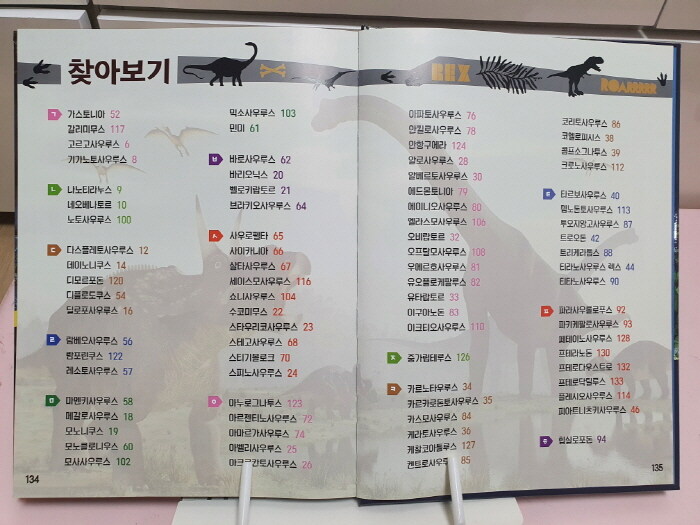 찾아보기
REX
ROARRRRR
ㄱ 가스토니아 52
갈리미무스 117
고르고사우루스 6
기가노토사우루스 8
ㄴ 나노티라누스 9
네오베나토르 10
노토사우루스 100
ㄷ 다스플레토사우루스 12
데이노니쿠스 14
디모르포돈 120
디플로도쿠스 54
딜로포사우루스 16
ㄹ 람베오사우루스 56
람포린쿠스 122
레소토사우루스 57
ㅁ 마멘키사우루스 58
메갈로사우루스 18
모노니쿠스 19
모노클로니우스 60
모사사우루스 102
믹소사우루스 103
민미 61
ㅂ 바로사우루스 62
바리오닉스 20
벨로키랍토르 21
브라키오사우루스 64
ㅅ 사우로펠타 65
사이카니아 66
살타사우루스 67
세이스모사우루스 116
쇼니사우루스 104
수코미무스 22
스타우리코사우루스 23
스테고사우루스 68
스티기몰로크 70
스피노사우루스 24
ㅇ 아누로그나투스 123
아르젠티노사우루스 72
아마르가사우루스 74
아벨리사우루스 25
아크로칸토사우루스 26
134
아파토사우루스 76
안킬로사우루스 78
안항구에라 124
알로사우루스 28
알베르토사우루스 30
에드몬토니아 79
에이니오사우루스 80
엘라스모사우루스 106
오비랍토르 32
오프탈모사우루스 108
우에르호사우루스 81
유오플로케팔루스 82
유타랍토르 33
이구아노돈 83
이크티오사우루스 110
ㅈ 중가립테루스 126
ㅋ 카르노타우루스 34
카르카로돈토사우루스 35
카스모사우루스 84
케라토사우루스 36
케찰코아틀루스 127
켄트로사우루스 85
코리토사우루스 86
코엘로피시스 38
콤프소그나투스 39
크로노사우루스 112
ㅌ 타르보사우루스 40
템노돈토사우루스 113
투오지앙고사우루스 87
트로오돈 42
트리케라톱스 88
티라노사우루스 렉스 44
티타노사우루스 90
ㅍ 파라사우롤로푸스 92
파키케팔로사우루스 93
페테이노사우루스 128
프테라노돈 130
프테로다우스트로 132
프테로닥틸루스 133
플레시오사우루스 114
피아트니츠키사우루스 46
ㅎ 힙실로포돈 94
135